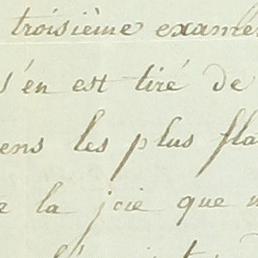 troisième examen
s'en est tiré de
ens les plus fla
e la joie que